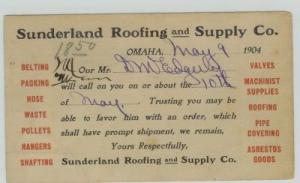 Sunderland Roofing and Supply Co.
1850
OMAHA, May 9 1904
Our Mr.
will call on you or about the 10th
of May. Trusting you may be
able to favor him with an order, which
shall have prompt shipment, we remain,
Yours Respectfully,
Sunderland Roofing and Supply Co.
BELTING
PACKING
HOSE
WASTE
PULLEYS
HANGERS
SHAFTING
VALVES
MACHINIST
SUPPLIES
ROOFING
PIPE
COVERING
ASBESTOS
GOODS